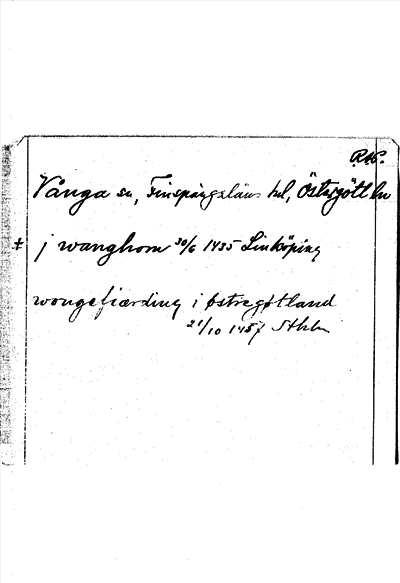 RAP.
Vånga sn, Finspångaläns hd, Östergötl ln
‡ j wanghom 30/6 1435 Linköping
wongefiærding i østregøtland
21/10 1457 Sthlm